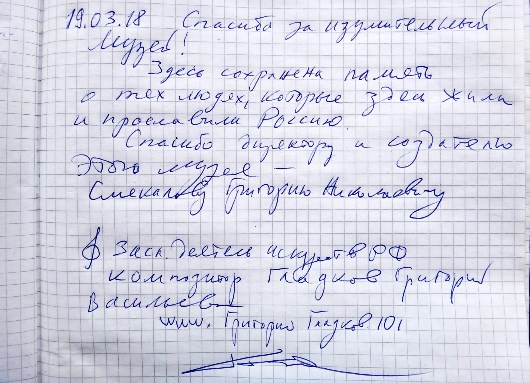 19.03.18 Спасибо за изумительный
Музей!
Здесь сохранена память
о тех людях, которые здесь жили
и прославили Россию.
Спасибо директору и создателю
этого музея —
Смекалову Григорию Николаевичу
Засл. деятель искусств РФ
композитор Гладков Григорий
Васильев
www. Григорий Гладков 101